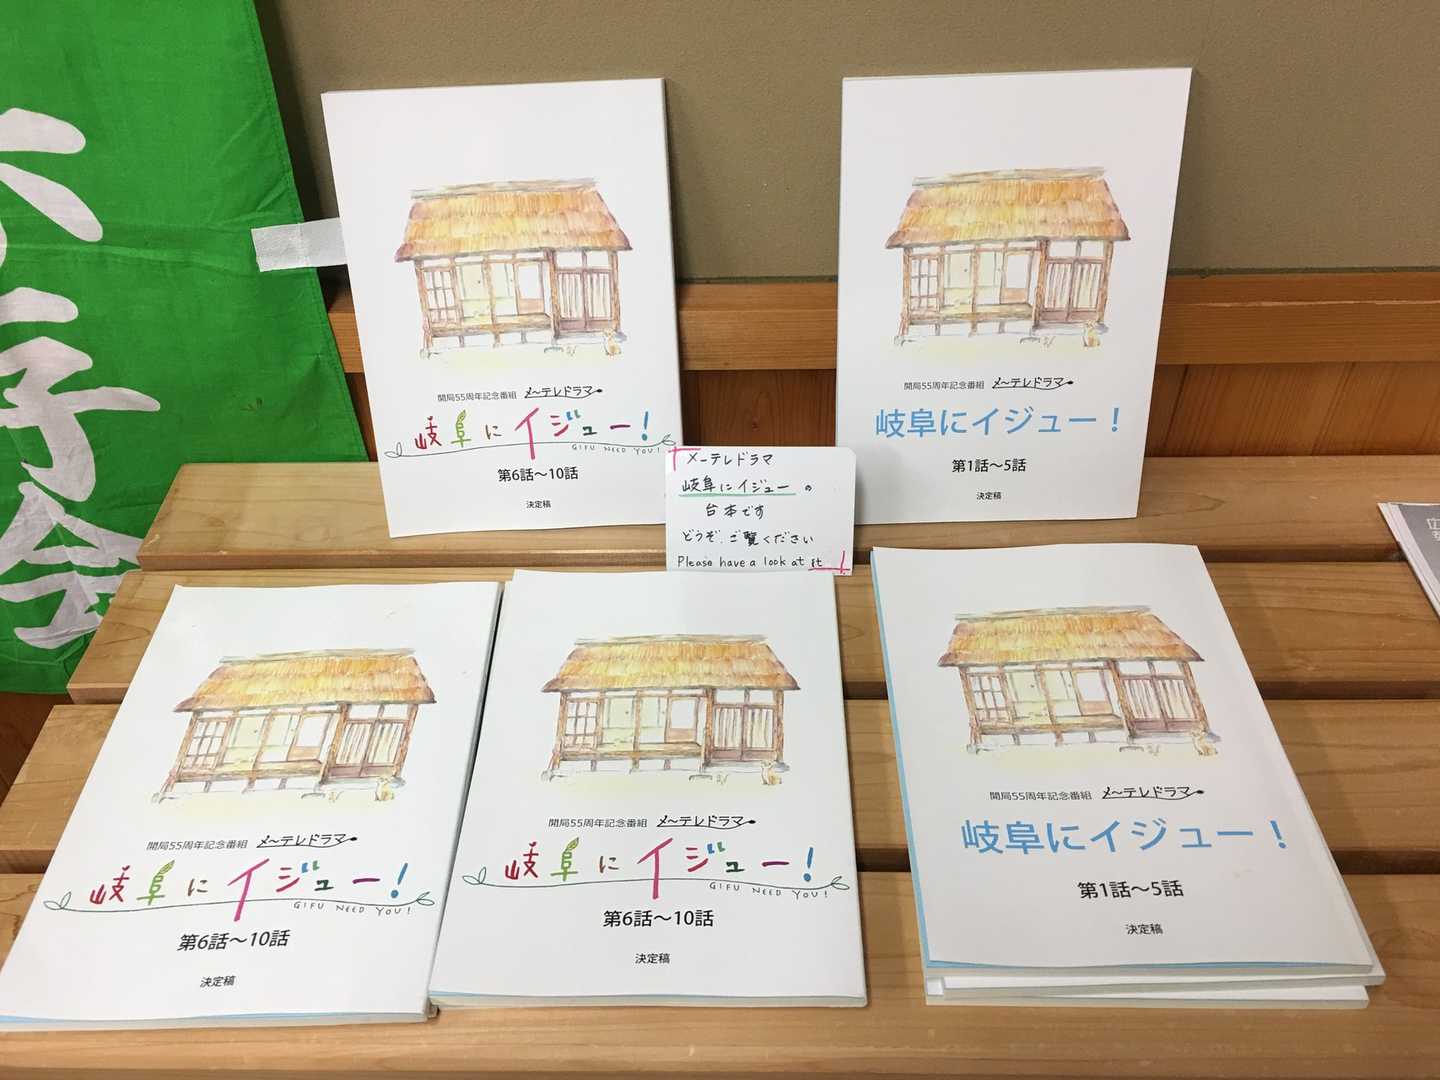 開局55周年記念番組 メ〜テレドラマ
岐阜にイジュー!
GIFU NEED YOU!
第6話〜10話
決定稿
開局55周年記念番組 メ〜テレドラマ
岐阜にイジュー!
第1話〜5話
決定稿
メーテレドラマ
岐阜にイジューの
台本です
どうぞ、ご覧ください
Please have a look at it
開局55周年記念番組 メ〜テレドラマ
岐阜にイジュー!
GIFU NEED YOU!
第6話〜10話
決定稿
開局55周年記念番組 メ〜テレドラマ
岐阜にイジュー!
GIFU NEED YOU!
第6話〜10話
決定稿
開局55周年記念番組 メ〜テレドラマ
岐阜にイジュー!
第1話〜5話
決定稿
子会